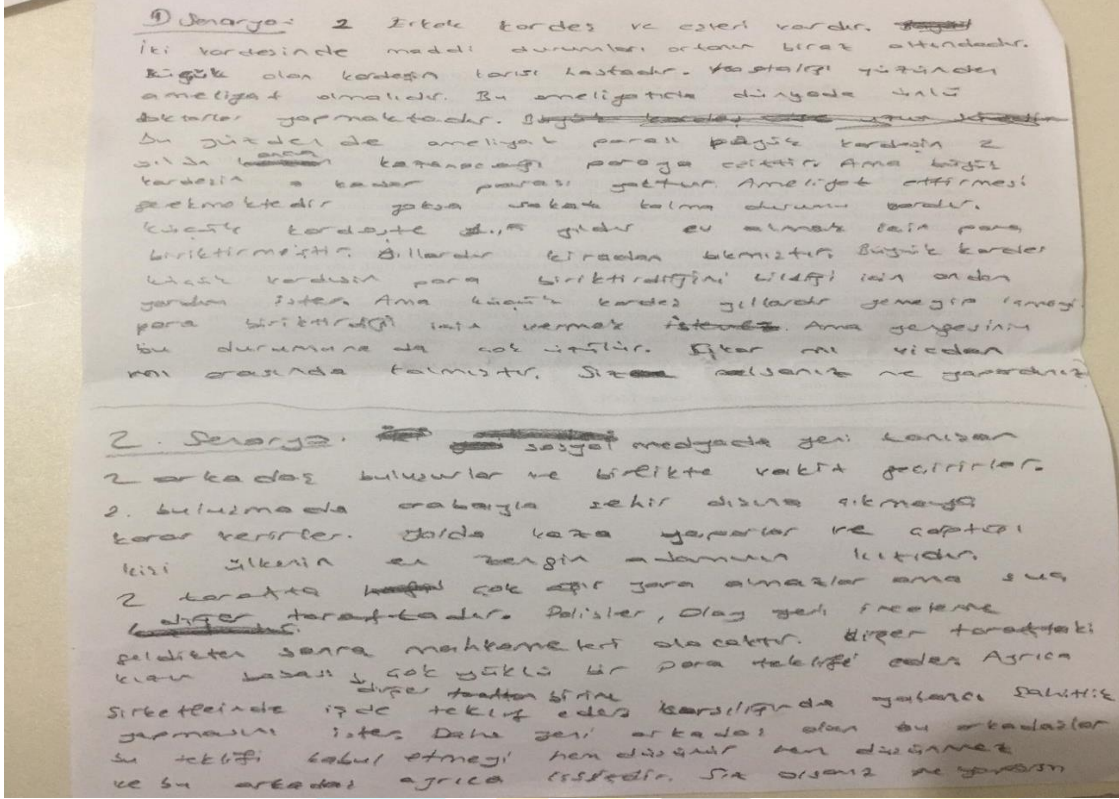 1) Senaryo: 2 Erkek kardeş ve eşleri vardır.
İki kardeşinde maddi durumları ortanın biraz altındadır.
Küçük olan kardeşin karısı hastadır. Hastalığı yüzünden
ameliyat olmalıdır. Bu ameliyatıda dünyada ünlü
doktorlar yapmaktadır.
Bu yüzden de ameliyat parası büyük kardeşin 2
yılda kazanacağı paraya eşittir. Ama büyük
kardeşin o kadar parası yoktur. Ameliyat ettirmesi
gerekmektedir yoksa sakat kalma durumu vardır.
Küçük kardeşte yıldır ev almak için para
biriktirmiştir. Yıllardır kiradan bıkmıştır. Büyük kardeş
küçük kardeşin para biriktirdiğini bildiği için ondan
yardım ister. Ama küçük kardeş yıllardır yemeyip içmeyip
para biriktirdiği için vermek istemez. Ama yengesinin
bu durumuna da çok üzülür. Çıkar mı vicdan
mı arasında kalmıştır. Siz olsanız ne yapardınız
2. Senaryo: sosyal medyada yeni tanışan
2 arkadaş buluşurlar ve birlikte vakit geçirirler.
2. buluşmada arabayla şehir dışına çıkmaya
karar verirler. Yolda kaza yaparlar ve çaptığı
kişi ülkenin en zengin adamının kızıdır.
2 tarafta çok ağır yara almazlar ama suç
diğer taraftadır. Polisler, olay yeri inceleme
geldikten sonra mahkemeleri olacaktır. Diğer taraftaki
kızın babası çok yüklü bir para teklifi eder. Ayrıca
diğer birine
şirketleinde işde teklif eder karşılığında yalancı şahitlik
yapmasını ister. Daha yeni arkadaş olan bu arkadaşlar
bu teklifi kabul etmeyi hem düşünür hem düşünmez
ve bu arkadaş ayrıca işsizdir. Siz olsanız ne yaparsın